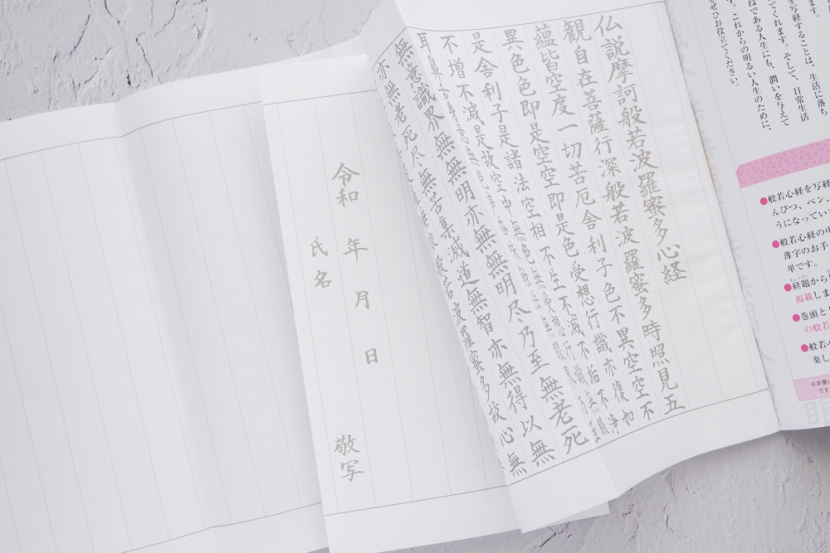 ます。
を写経することは、生活に落ち
てくれます。そして、日常生活
ねである人生にも、潤いを与えて
す。これからの明るい人生のために、
ぜひお役立てください。
●般若心経を写経
んぴつ、ペン、
うになってい
●般若心経の
薄字のお手
単です。
●経題から
掲載しま
●巻頭と
の般若
●般若
楽し
※本書
です
仏説摩訶般若波羅蜜多心経
観自在菩薩行深般若波羅蜜多時照見五
蘊皆空度一切苦厄舎利子色不異空空不
異色色即是空空即是色受想行識亦復如
是舎利子是諸法空相不生不滅不垢不浄
不増不減是故空中無色無受想行識無眼
耳
無意識界無無明亦無無明尽乃至無老死
亦無老死尽無苦集滅道無智亦無得以無
般若波羅蜜多故心無
令和 年 月 日
氏名
敬写